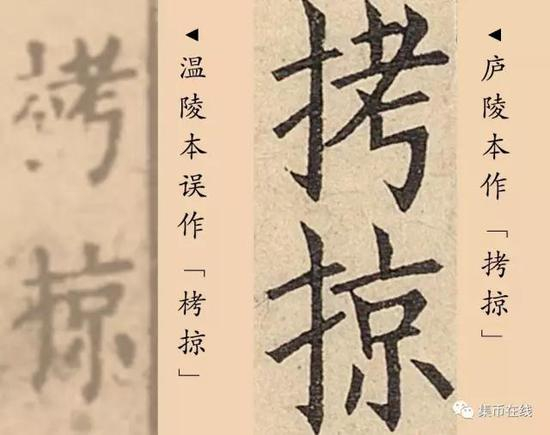 ◀庐陵本作「拷掠」
拷掠
◀温陵本误作「栲掠」
栲掠
集币在线